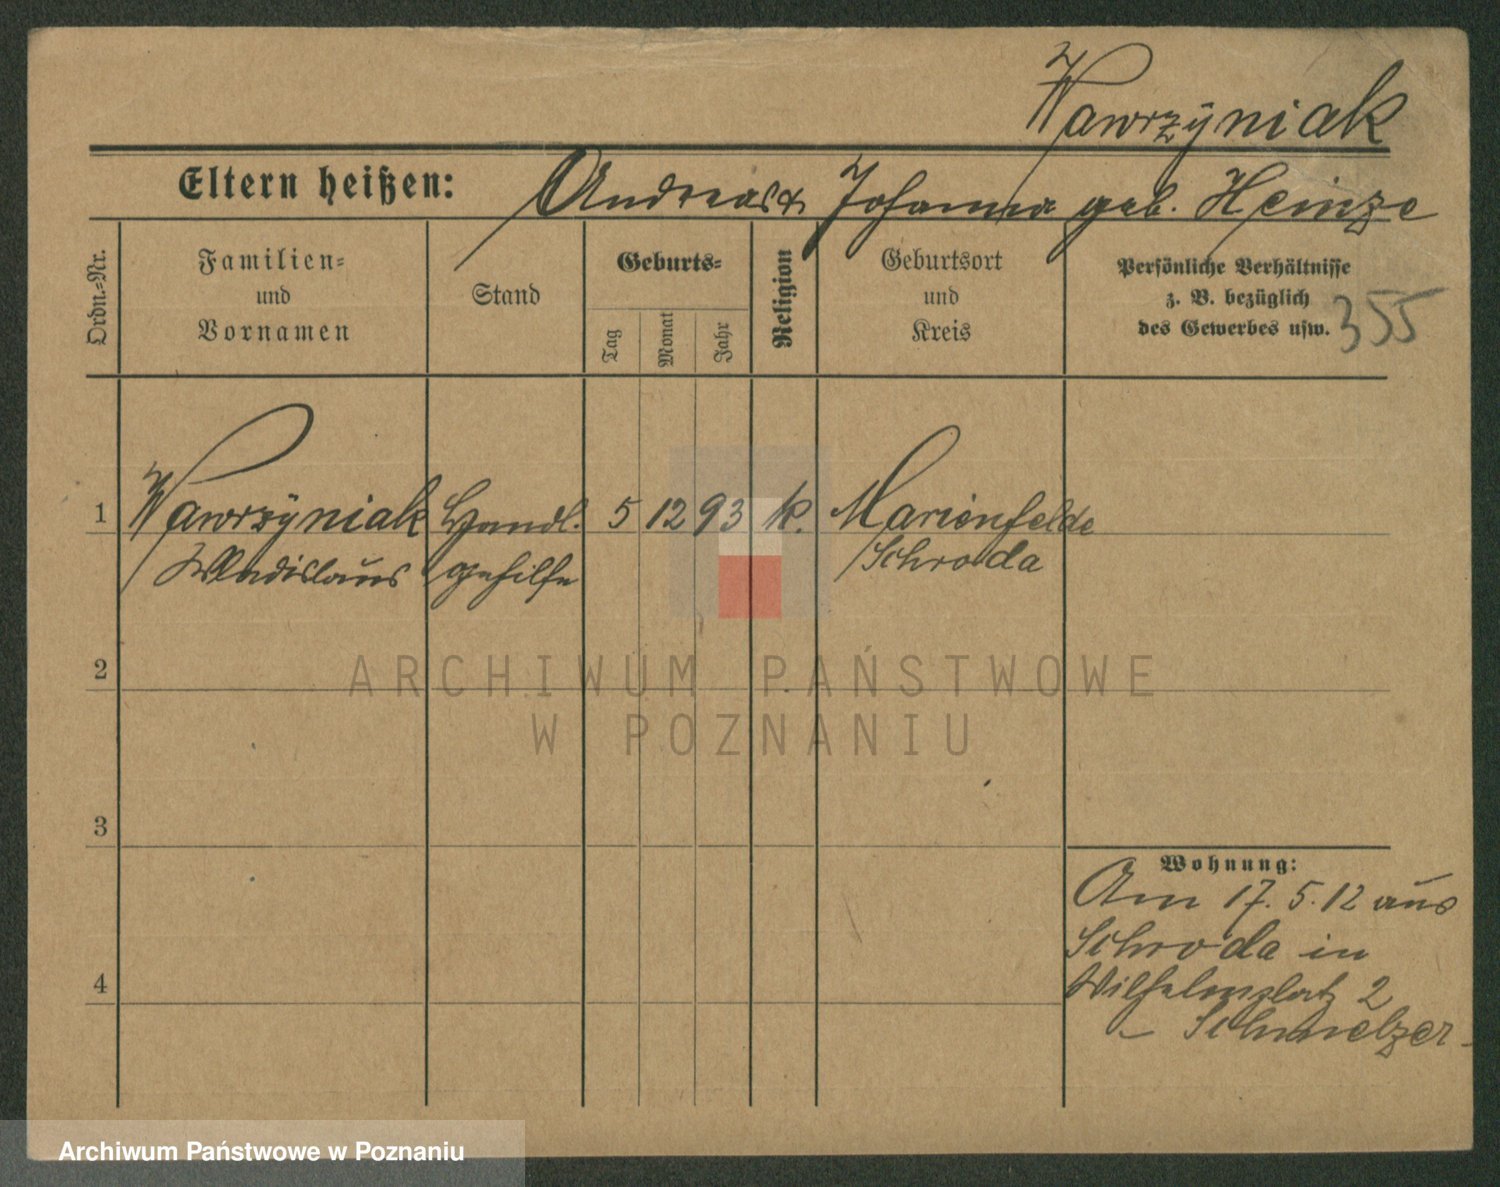 Wawrzÿniak
Eltern heißen: Andreas & Johanna geb. Heinze
Ordn.-Nr.
Familien-
und
Vornamen
Stand
Geburts-
Tag
Monat
Jahr
Religion
Geburtsort
und
Kreis
Persönliche Verhältnisse
z. B. bezüglich
des Gewerbes usw.
355
1 Wawrzÿniak Handl. 5 12 93 k. Marienfelde
Wladislaus gehilfe Schroda
2
3
4
Wohnung:
Am 17. 5. 12 aus
Schroda in
Wilhelmplatz 2
– Schmelzer –
ARCHIWUM PAŃSTWOWE
W POZNANIU
Archiwum Państwowe w Poznaniu